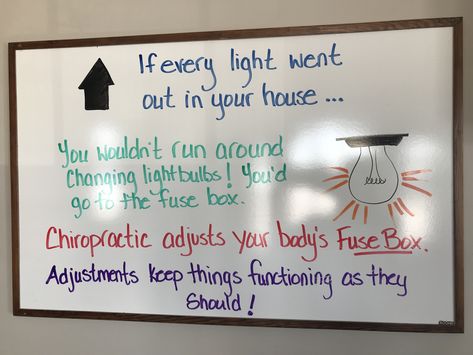 If every light went
out in your house...
You wouldn't run around
Changing lightbulbs! You'd
go to the fuse box.
Chiropractic adjusts your body's Fuse Box.
Adjustments keep things functioning as they
Should!